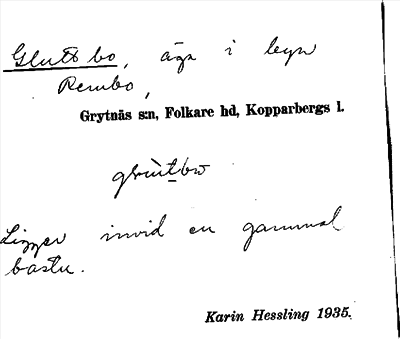 Gluttbo, äga i byn
Rembo,
Grytnäs s:n, Folkare hd, Kopparbergs l.
Ligger invid en gammal
bastu.
Karin Hessling 1935.